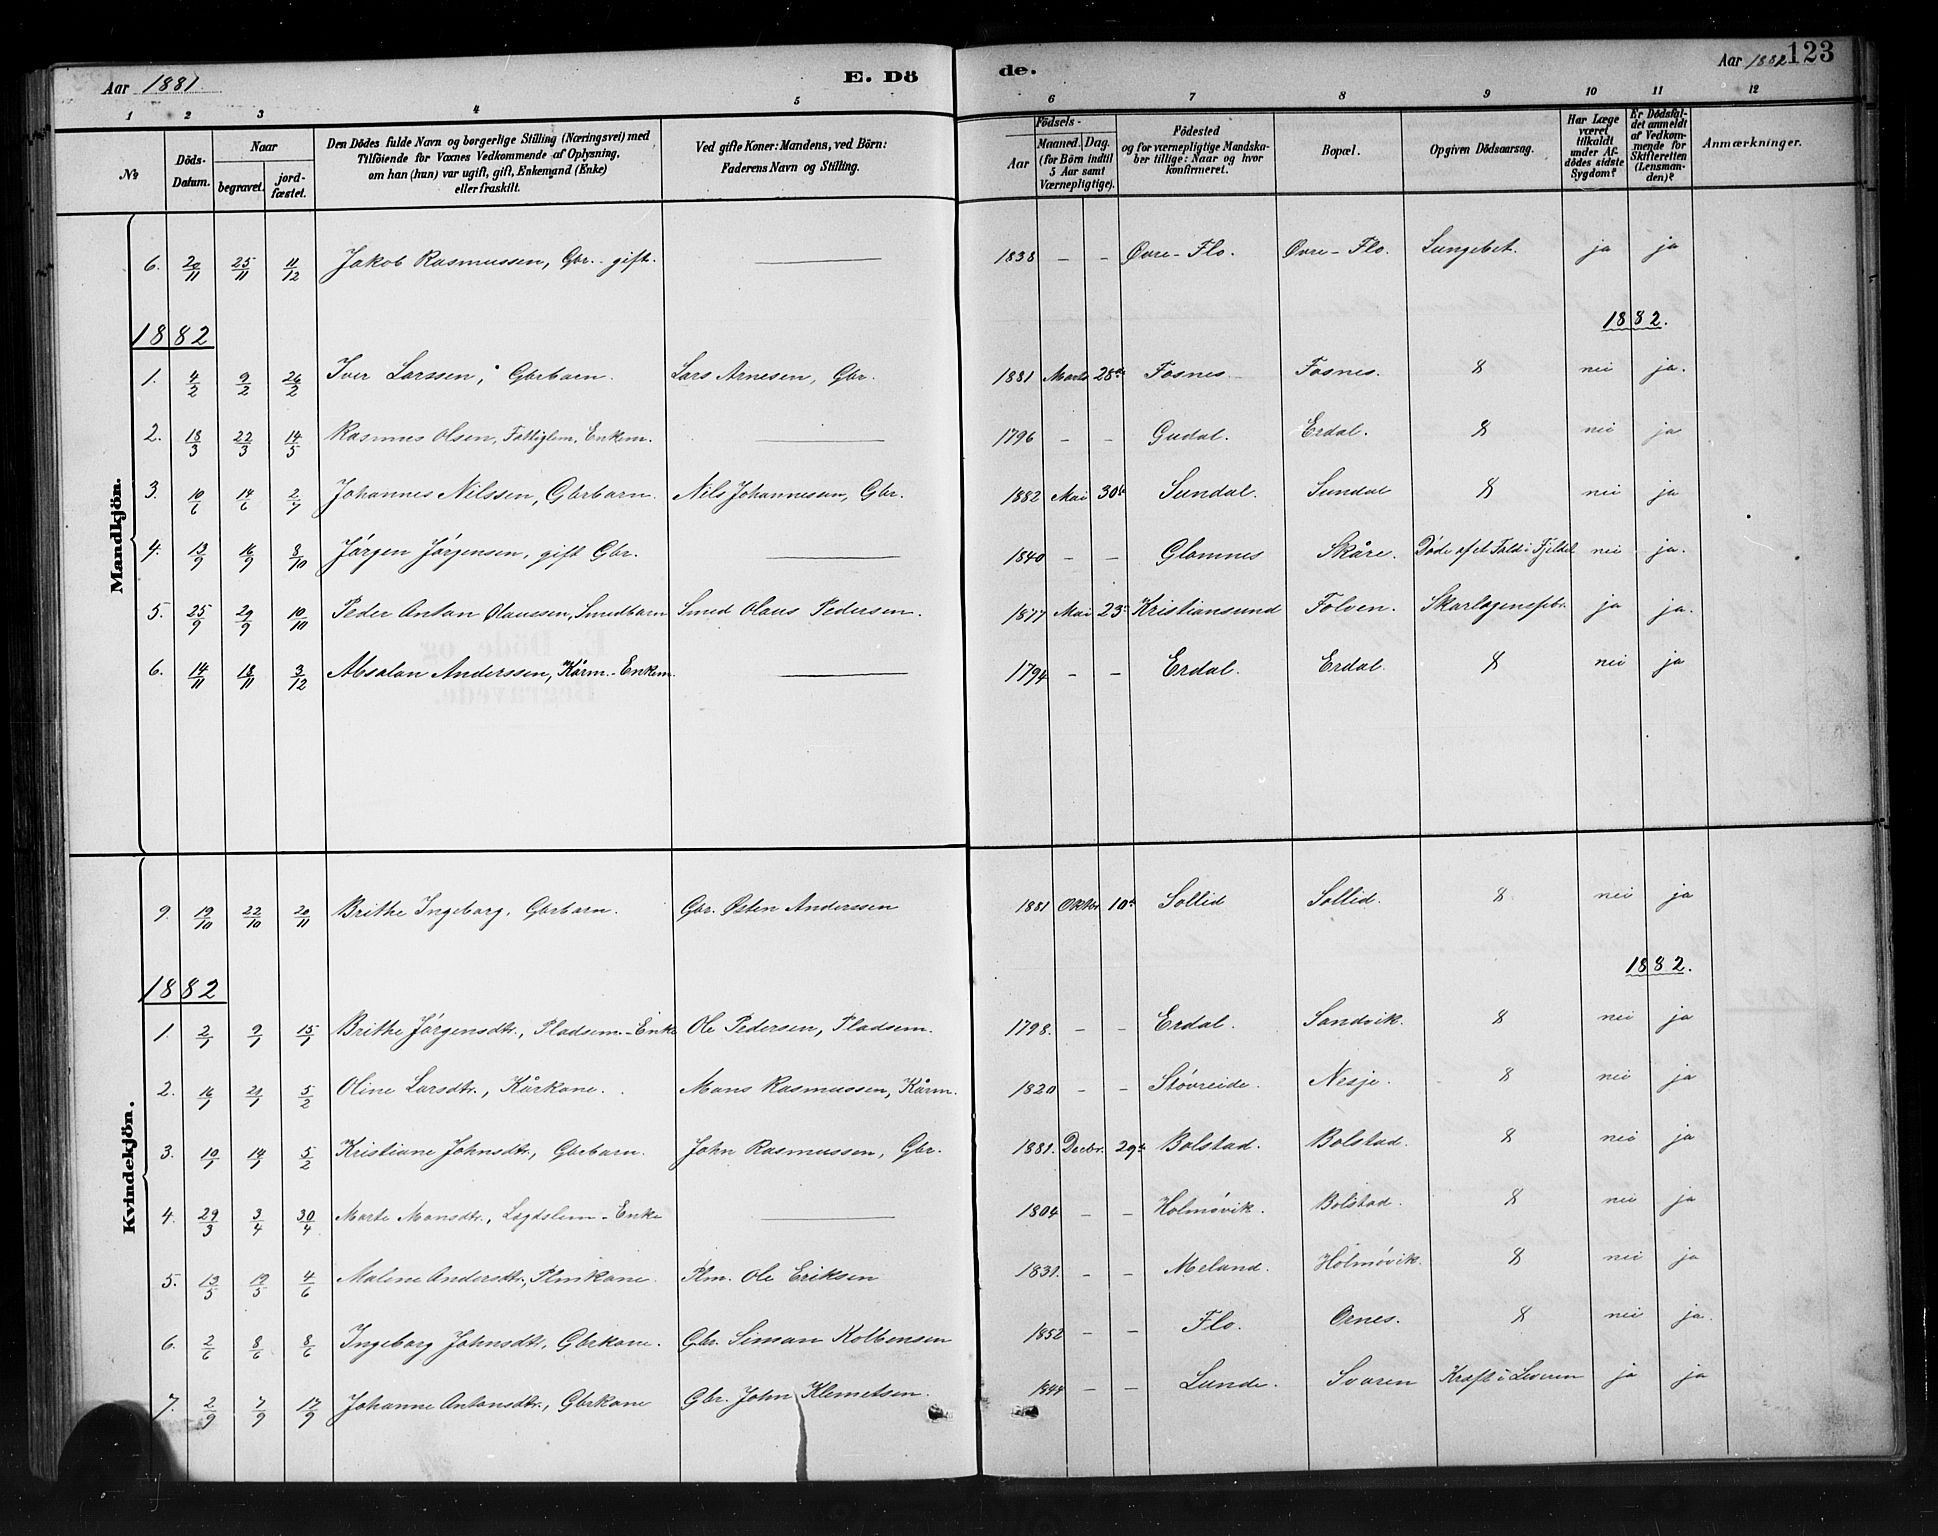 Aar 1881 E. Dö de. Aar 1882 123
1 2 3 4 5 6 7 8 9 10 11 12
No
Döds-Datum.
Naar
begravet.
jord-fæstet.
Den Dödes fulde Navn og borgerlige Stilling (Næringsvei) med
Tilföiende for Voxnes Vedkommende af Oplysning,
om han (hun) var ugift, gift, Enkemand (Enke)
eller fraskilt.
Ved gifte Koner: Mandens, ved Börn:
Faderens Navn og Stilling.
Födsels-
Aar
Maaned. Dag.
(for Börn indtil
5 Aar samt
Værnepligtige).
Födested
og for værnepligtige Mandska-
ber tillige: Naar og hvor
konfirmeret.
Bopæl.
Opgiven Dödsaarsag.
Har Læge
været
tilkaldt
under Af-
dödes sidste
Sygdom?
Er Dödsfal-
det anmeldt
af Vedkom-
mende for
Skifteretten
(Lensman-
den)?
Anmærkninger.
Mandkjön.
6. 20/11 25/11 11/12 Jakob Rasmussen, Gbr. gift. — 1838 – – Øvre-Flo. Øvre-Flo. Lungebet. ja ja
1882 1882.
1. 4/2 9/2 26/2 Iver Larssen, Gbrbarn. Lars Arnesen, Gbr. 1881 Marts 28de Fosnes. Fosnes. nei ja.
2. 18/3 22/3 14/5 Rasmus Olsen, Fattiglem, Enkem. — 1796 – – Gudal. Erdal. nei ja
3. 10/6 14/6 2/7 Johannes Nilssen, Gbrbarn. Nils Johannesen, Gbr. 1882 Mai 30te Sundal. Sundal nei ja
4. 13/9 16/9 8/10 Jørgen Jørgensen, gift Gbr. — 1840 – – Glomnes Skåre. Døde af et Fald i Fjeldet nei ja.
5. 25/9 29/9 10/10 Peder Anton Olaussen, Smedbarn Smed Olaus Pedersen. 1877 Mai 23 Kristiansund Folven. Skarlagensfebr. ja ja.
6. 14/11 18/11 3/12 Absalon Anderssen, Kårm.-Enkem. — 1794 – – Erdal. Erdal. nei ja
Kvindekjön.
9. 19/10 22/10 20/11 Brithe Ingeborg, Gbrbarn. Gbr. Østen Anderssen 1881 Oktbr. 10de Sollid Sollid. nei ja
1882 1882.
1. 2/1 9/1 15/1 Brithe Jørgensdtr., Pladsem.-Enke Ole Pedersen, Pladsem. 1798. – – Erdal. Sandvik. nei ja
2. 16/1 21/1 5/2 Oline Larsdtr., Kårkone. Mons Rasmussen, Kårm. 1820 – – Støvreide. Nesje. nei ja
3. 10/1 14/1 5/2 Kristiane Johnsdtr., Gbrbarn. John Rasmussen, Gbr. 1881. Decbr. 29de Bolstad. Bolstad. nei ja
4. 29/3 3/4 30/4 Marte Monsdtr., Lægdslem-Enke — 1804 – – Holmøvik. Bolstad. nei ja
5. 13/5 19/5 4/6 Malene Andersdtr., Plmkone. Plm. Ole Eriksen 1831. – – Meland. Holmøvik. nei ja
6. 2/6 8/6 8/6 Ingeborg Johnsdtr., Gbrkone. Gbr. Simon Kolbensen 1852 – – Flo. Ornes. nei ja.
7. 2/9 7/9 17/9 Johanne Antonsdtr., Gbrkone Gbr. John Klemetsen. 1844 – – Lunde. Svoren Kræft i Leveren ja ja